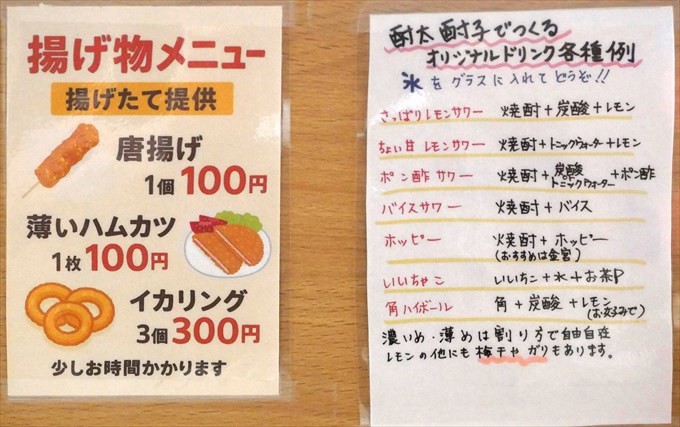 揚げ物メニュー
揚げたて提供
唐揚げ
1個 100円
薄いハムカツ
1枚 100円
イカリング
3個 300円
少しお時間かかります
酎太酎子でつくる
オリジナルドリンク各種例
氷をグラスに入れてどうぞ!!
さっぱりレモンサワー 焼酎+炭酸+レモン
ちょい甘レモンサワー 焼酎+トニックウォーター+レモン
ポン酢サワー 焼酎+炭酸 トニックウォーター+ポン酢
バイスサワー 焼酎+バイス
ホッピー 焼酎+ホッピー
(おすすめは金宮)
いいちゃこ いいちこ+水+お茶P
角ハイボール 角+炭酸+レモン
(お好みで)
濃いめ・薄めは割り方で自由自在
レモンの他にも梅干やガリもあります。